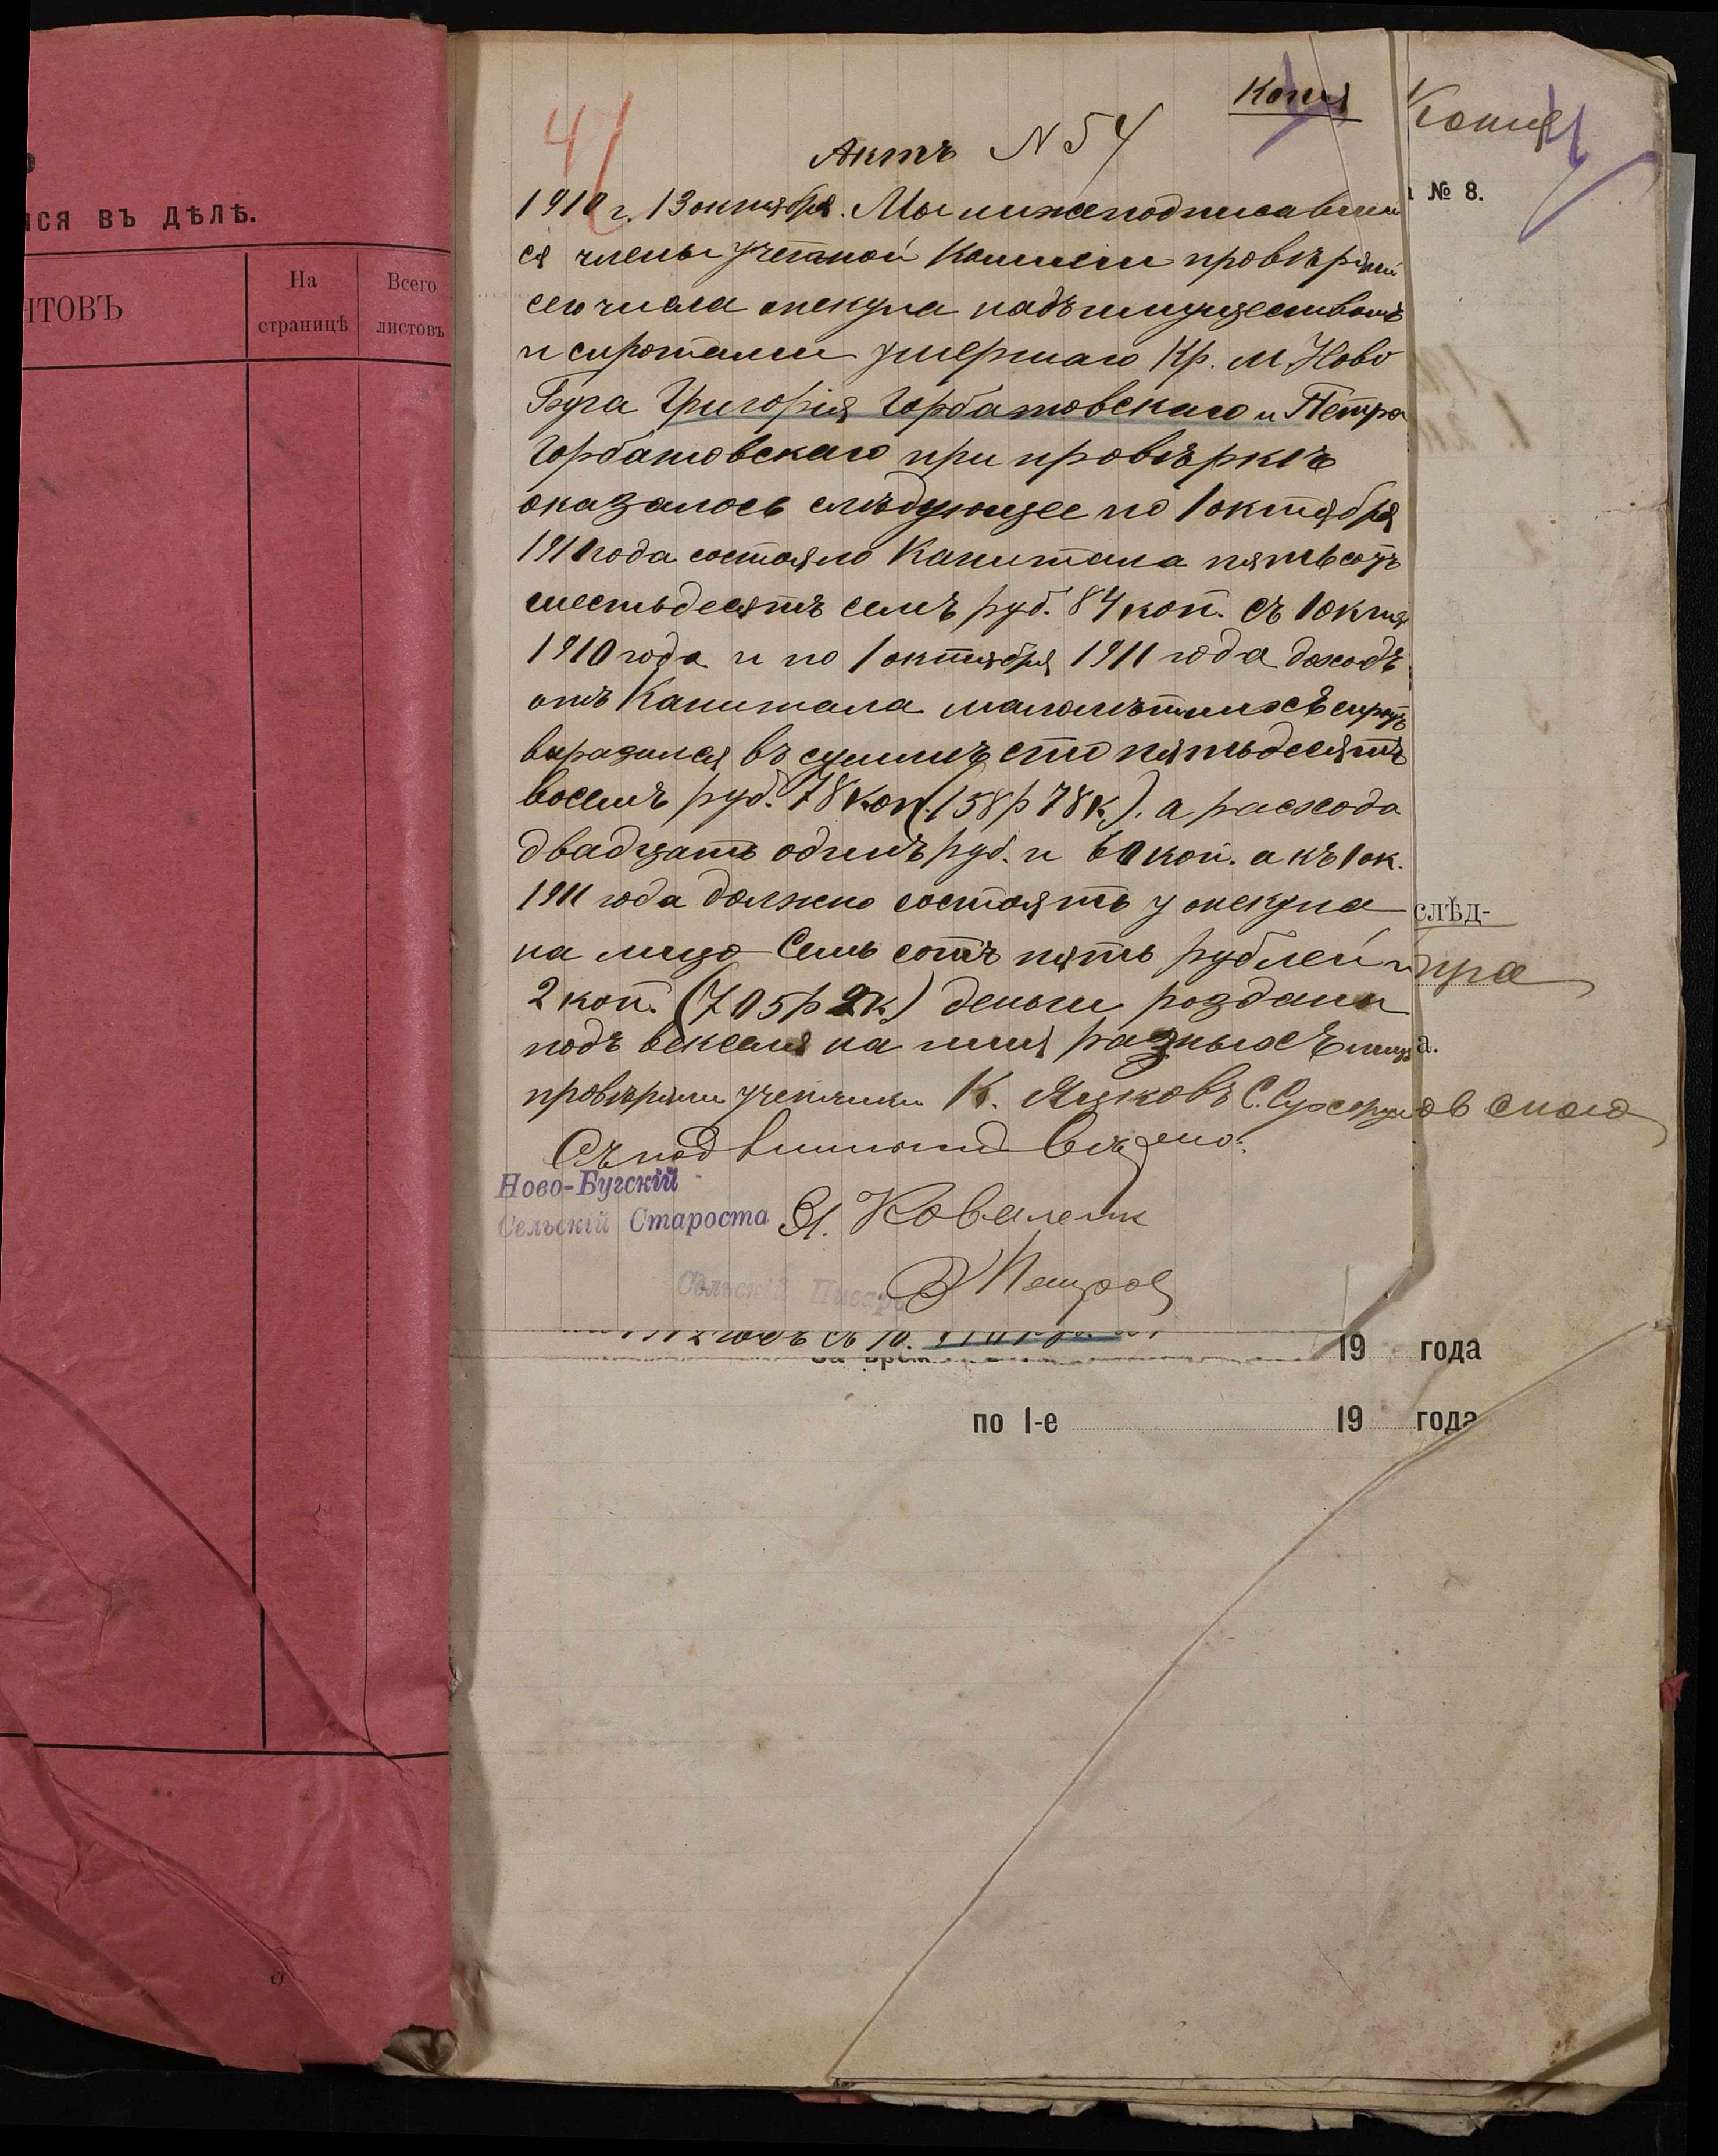 ися въ дѣлѣ.
нтовъ
На страницѣ
Всего листовъ
Копія
Копія
№ 8.
41
Актъ N 54
1910 г. 13 октября. Мы нижеподписавшіи
ся члены учетной Комисіи провѣряли
сего числа опекуна надъ имуществомъ
и сиротами умершаго Кр. м. Ново
Буга Григорія Горбатовскаго и Петра
Горбатовскаго при провѣркѣ
оказалось слѣдующее по 1 октября
1910 года состояло Капитала пятьсотъ
шестьдесятъ семъ руб. 84 коп. съ 1 октя
1910 года и по 1 октября 1911 года доходъ
отъ Капитала малолѣтнихъ сиротъ
выразился въ суммѣ сто пятьдесятъ
восемъ руб. 78 коп. (158 р 78 к). а расхода
двадцать одинъ руб. и 60 коп. а къ 1 ок.
1911 года должно состоять у опекуна
на лицо Семь сотъ пять рублей и
2 коп. (705 р 2 к) деньги розданы
подъ векселя на имя разныхъ лицъ
провѣряли учетчики К. Яцковъ
Съ подлиннымъ вѣрно:
Ново-Бугскій
Сельскій Староста Я. Коваленк
Сельскій Писарь Петров
слѣд-
ра
а.
19 года
по 1-е 19 года